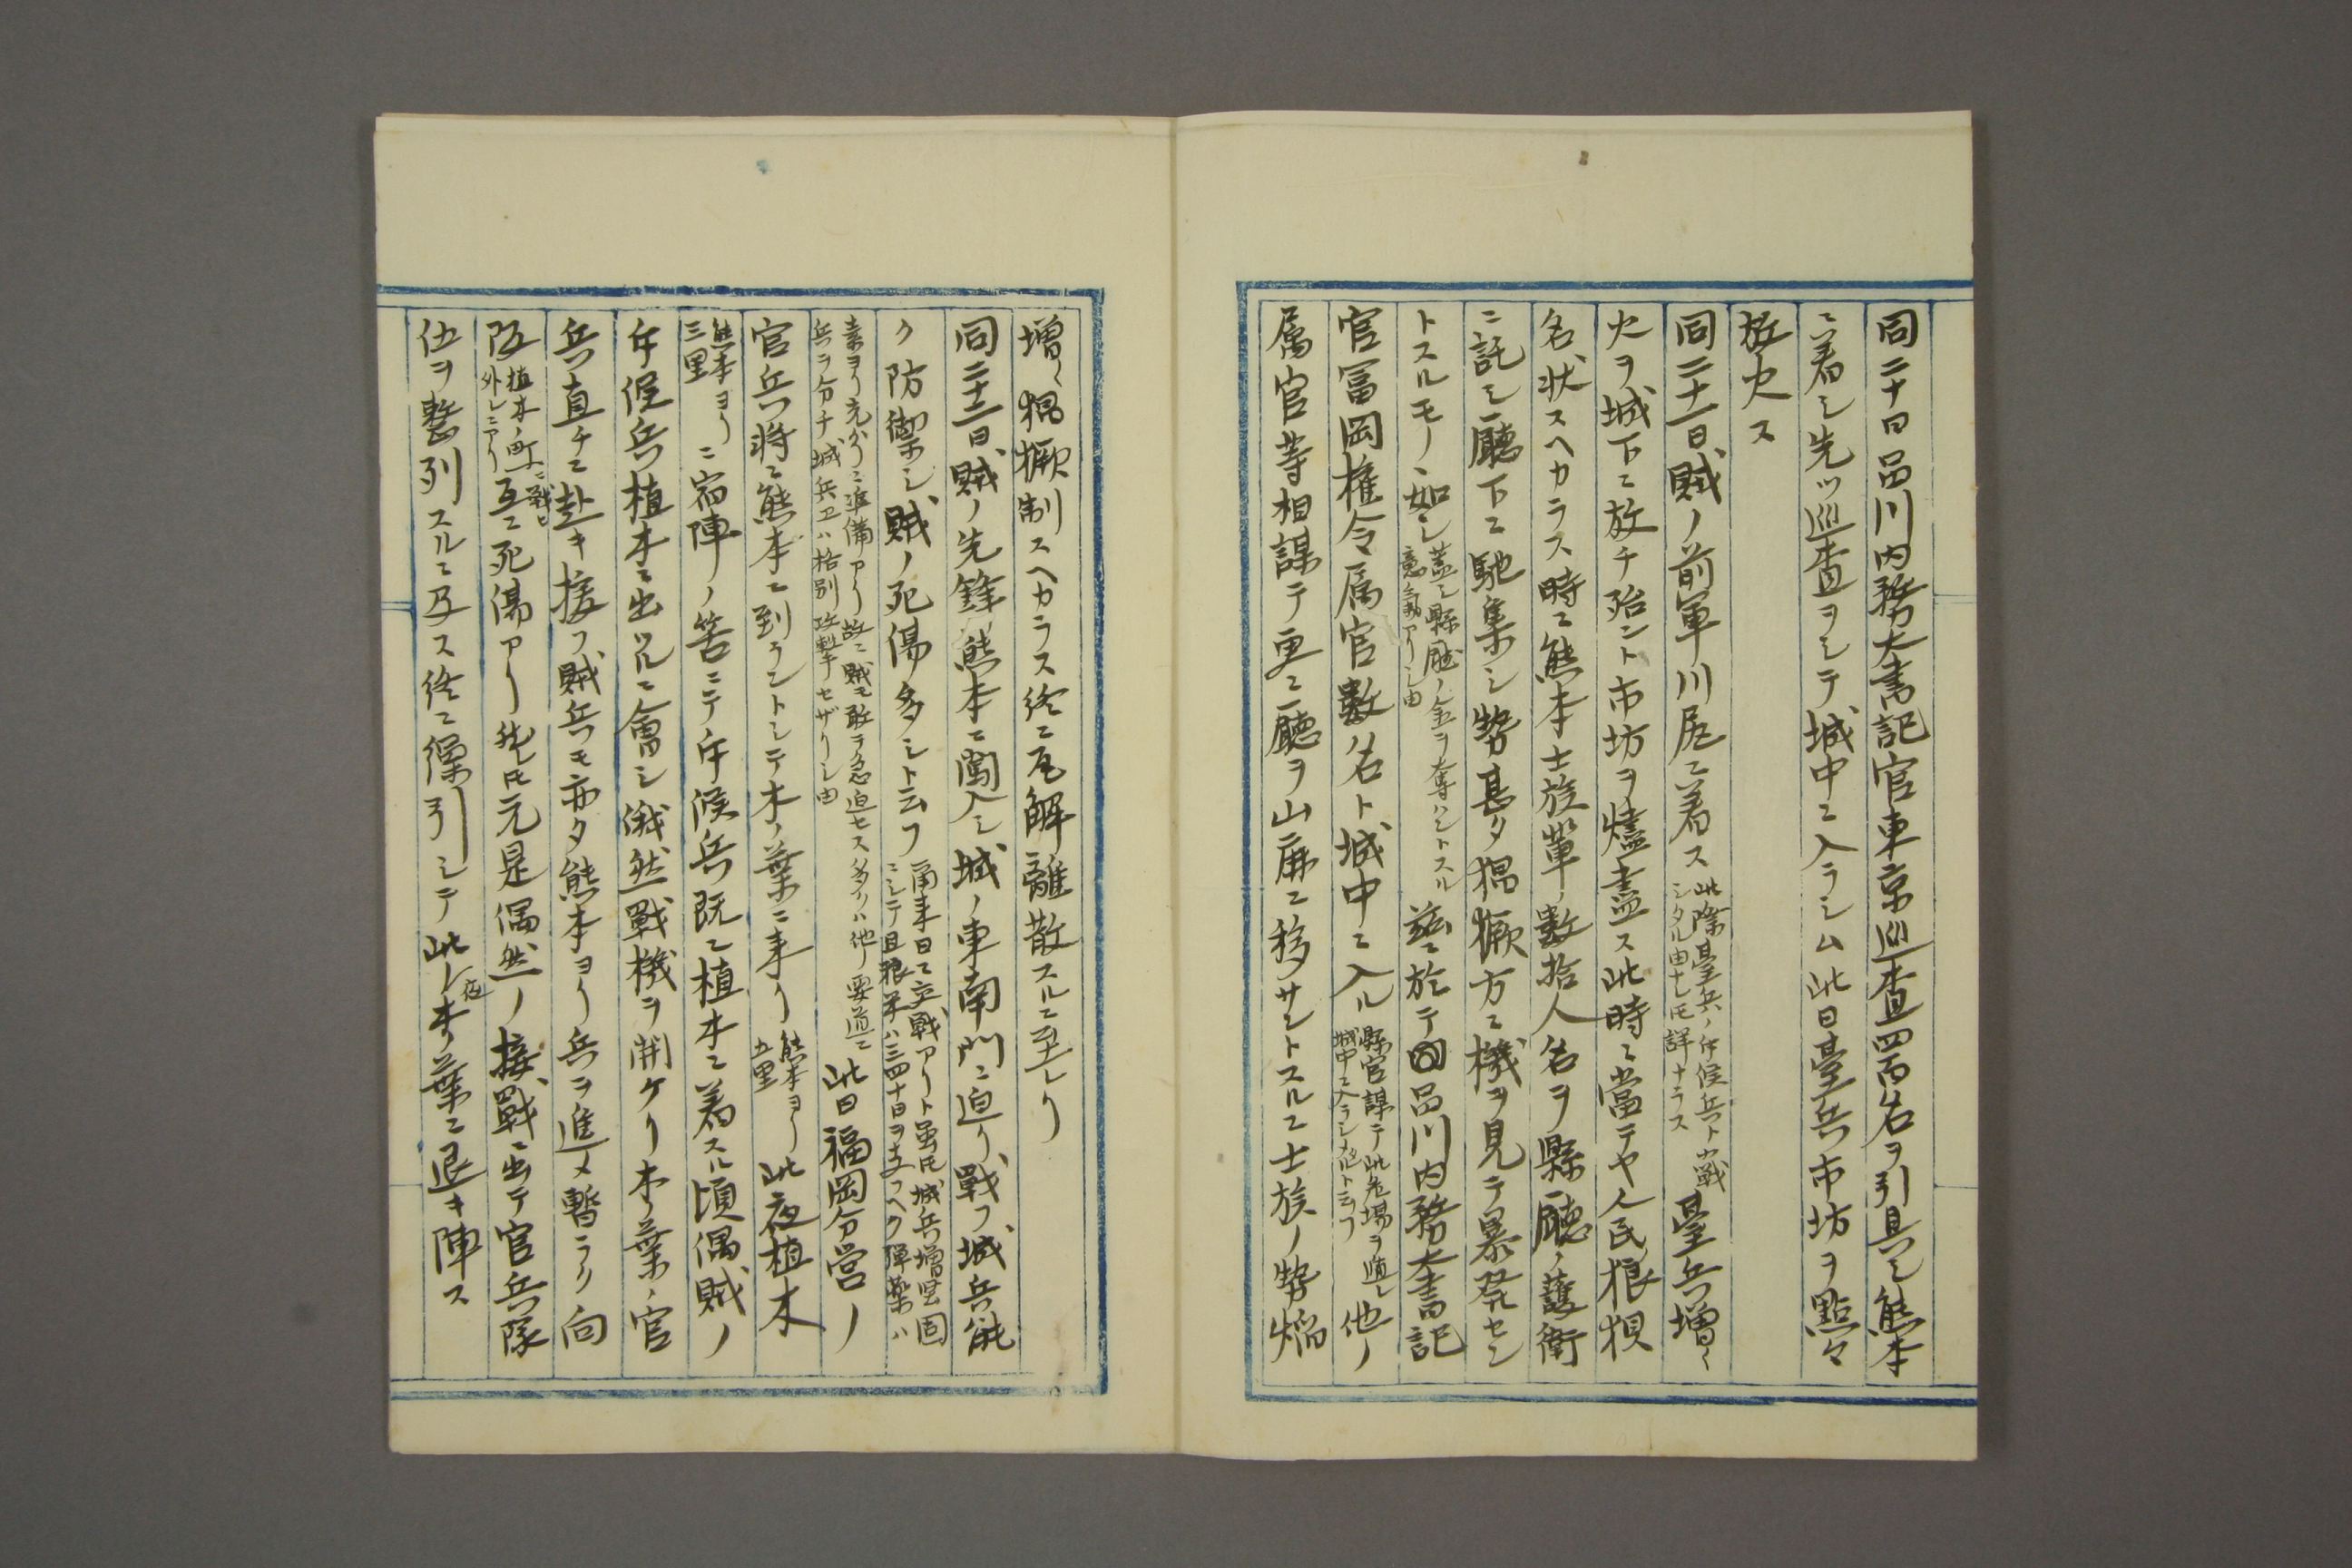 同二十日品川内務大書記官東京巡査四百名ヲ引具シ熊本
ニ着シ先ツ巡査ヲシテ城中ニ入ラシム此日臺兵市坊ヲ點々
放火ス
同二十一日賊ノ前軍川尻ニ着ス
此際臺兵ノ斥候兵ト小戦
シタル由ナレ𪜈詳ナラス
臺兵増〻
火ヲ城下ニ放チ殆ント市坊ヲ燼盡ス此時ニ當テヤ人民狼狽
名状スヘカラス時ニ熊本士族輩数拾人名ヲ縣廳ノ護衛
ニ託シ廳下ニ馳集シ勢甚タ猖獗方ニ機ヲ見テ暴発セン
トスルモノヽ如シ
蓋シ縣廳ノ金ヲ奪ハントスル
意氣アリシ由
茲ニ於テ品川内務大書記
官冨岡権令属官數名ト城中ニ入ル
縣官謀テ此危場ヲ遁レ
城中ニ入ラシメタルト云フ
他ノ
属官等相謀テ更ニ廳ヲ山麻ニ移サントスルニ士族ノ勢焔
増〻猖獗制スヘカラス終ニ瓦解離散スルニ至レリ
同二十二日賊ノ先鋒熊本ニ闖入シ城ノ東南門ニ迫リ戰フ城兵能
ク防禦シ賊ノ死傷多シト云フ
爾来日ニ交戦アリト虽𪜈城兵増堅固
ニシテ且粮米ハ三四十日ヲ支フヘク弾薬ハ
素ヨリ充分ニ準備アリ故ニ賊モ敢テ急迫セス多クハ他ノ要道ニ
兵ヲ分チ城兵ヱハ格別攻撃セザリシ由
此日福岡分営ノ
官兵将ニ熊本ニ到ラントシテ木ノ葉ニ来リ
熊本ヨリ
五里
此夜植木
熊本ヨリ
三里
ニ宿陣ノ筈ニテ斥候兵既ニ植木ニ着スル頃偶賊ノ
斥候兵植木ニ出ツルニ會シ俄然戰機ヲ開ケリ木ノ葉ノ官
兵直チニ赴キ援フ賊兵モ亦タ熊本ヨリ兵ヲ進メ暫ラク向
阪
植木ノ町
外レニアリ
ニ戰ヒ
互ニ死傷アリ然𪜈元是偶然ノ接戰ニ出テ官兵隊
伍ヲ整列スルニ及ス終ニ繰引シテ此レ夜木ノ葉ニ退キ陣ス